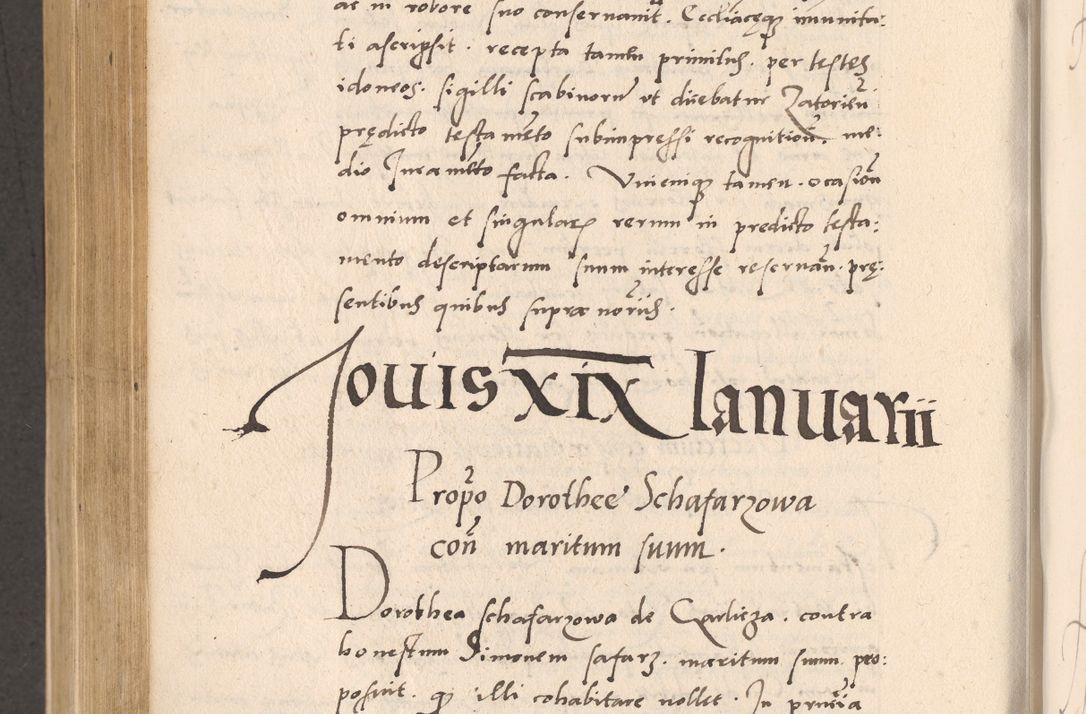 ac in robore suo conservavit. Ecclіacęq imunita:
ti ascripsit. recepta tamen primitus. per testes
idoneos. sigilli scabinorum ut dicebatur Zatorien
prędicto testamēto subimpressi recognitioñ. me:
dio Juramēto facta. Vnicuiq tamen. ocasioñ
omnium et singularꝫ rerum in predicto testa:
mento descriptarum suum interesse reservañ. prę:
sentibus quibus supra noriis.
Jouis XIX Ianuarii
Propo Dorothee Schafarzowa
coñ maritum suum.
Dorothea schafarzowa de Czarlicza. contra
honestum Simonem safarz. maritum suum pro:
posuit. q illi cohabitare nollet. In pruia